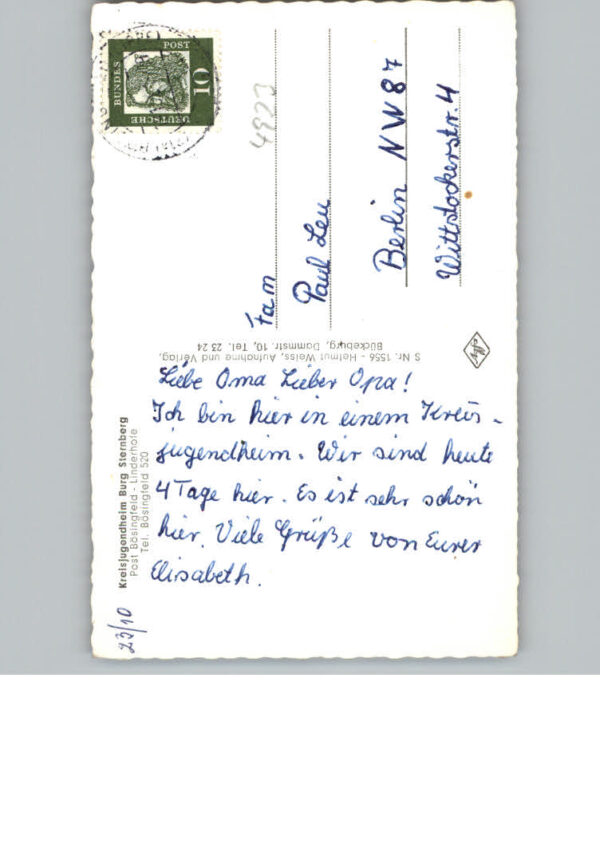 DEUTSCHE
BUNDES
POST
10
4923
Fam
Paul Leu
Berlin NW 87
Wittstockerstr. 4
S Nr. 1556 - Helmut Weiss, Aufnahme und Verlag,
Bückeburg, Dammstr. 10, Tel. 23 24
Liebe Oma Lieber Opa!
Ich bin hier in einem Kreis-
jugendheim. Wir sind heute
4 Tage hier. Es ist sehr schön
hier. Viele Grüße von Eurer
Elisabeth.
Kreisjugendheim Burg Sternberg
Post Bösingfeld - Linderhofe
Tel. Bösingfeld 520
23/10